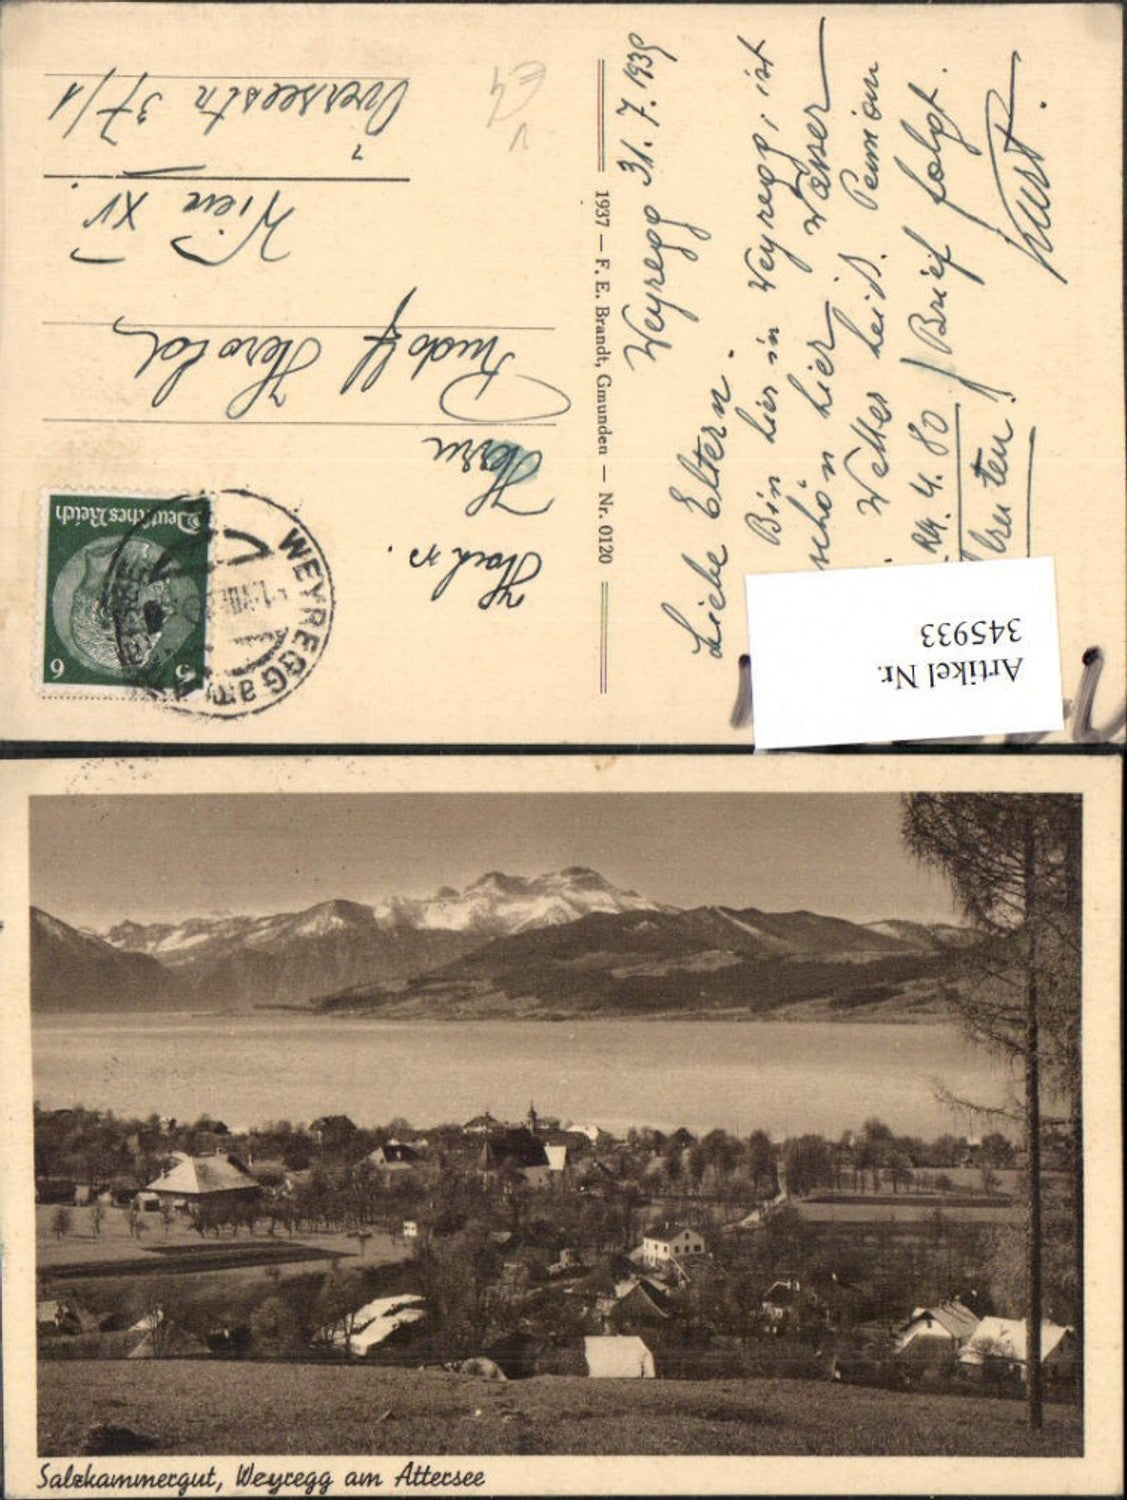 Weyregg 31. 7. 1939
Liebe Eltern.
Bin hier in Weyregg, ist
schön hier Wasser
Wetter heiß. Pension
RM. 4.80 / Brief folgt.
Kurt.
1937 — F. E. Brandt, Gmunden — Nr. 0120
Herrn
Rudolf Herold
Wien XV
37/1
Deutsches Reich
6
WEYREGG am
Artikel Nr.
345933
Salzkammergut, Weyregg am Attersee